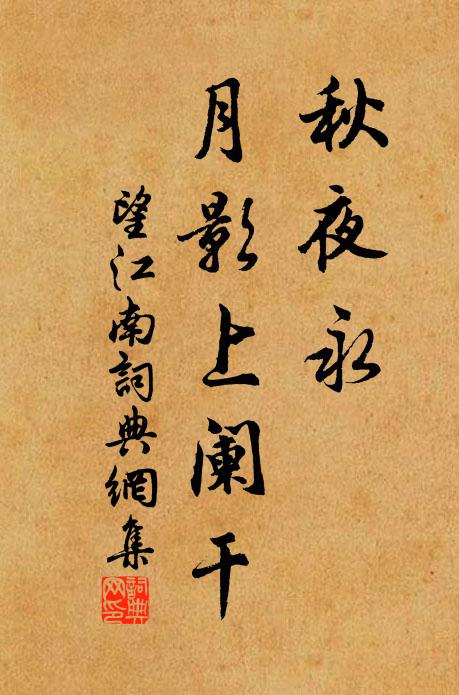 秋夜永
月影上阑干
望江南詞典網集
詞典
网印